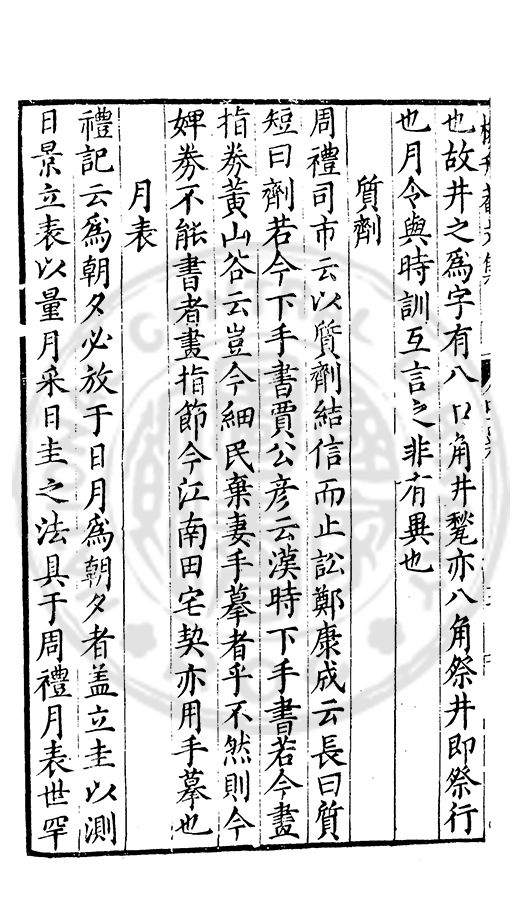 也故井之爲字有八口角井甃亦八角祭井即祭行
也月令與時訓互言之非有異也
質劑
周禮司市云以質劑結信而止訟鄭康成云長曰質
短曰劑若今下手書賈公彦云漢時下手書若今畫
指券黃山谷云豈今細民棄妻手摹者乎不然則今
婢券不能書者畫指節今江南田宅契亦用手摹也
月表
禮記云爲朝夕必放于日月爲朝夕者盖立圭以測
日景立表以量月采日圭之法具于周禮月表世罕